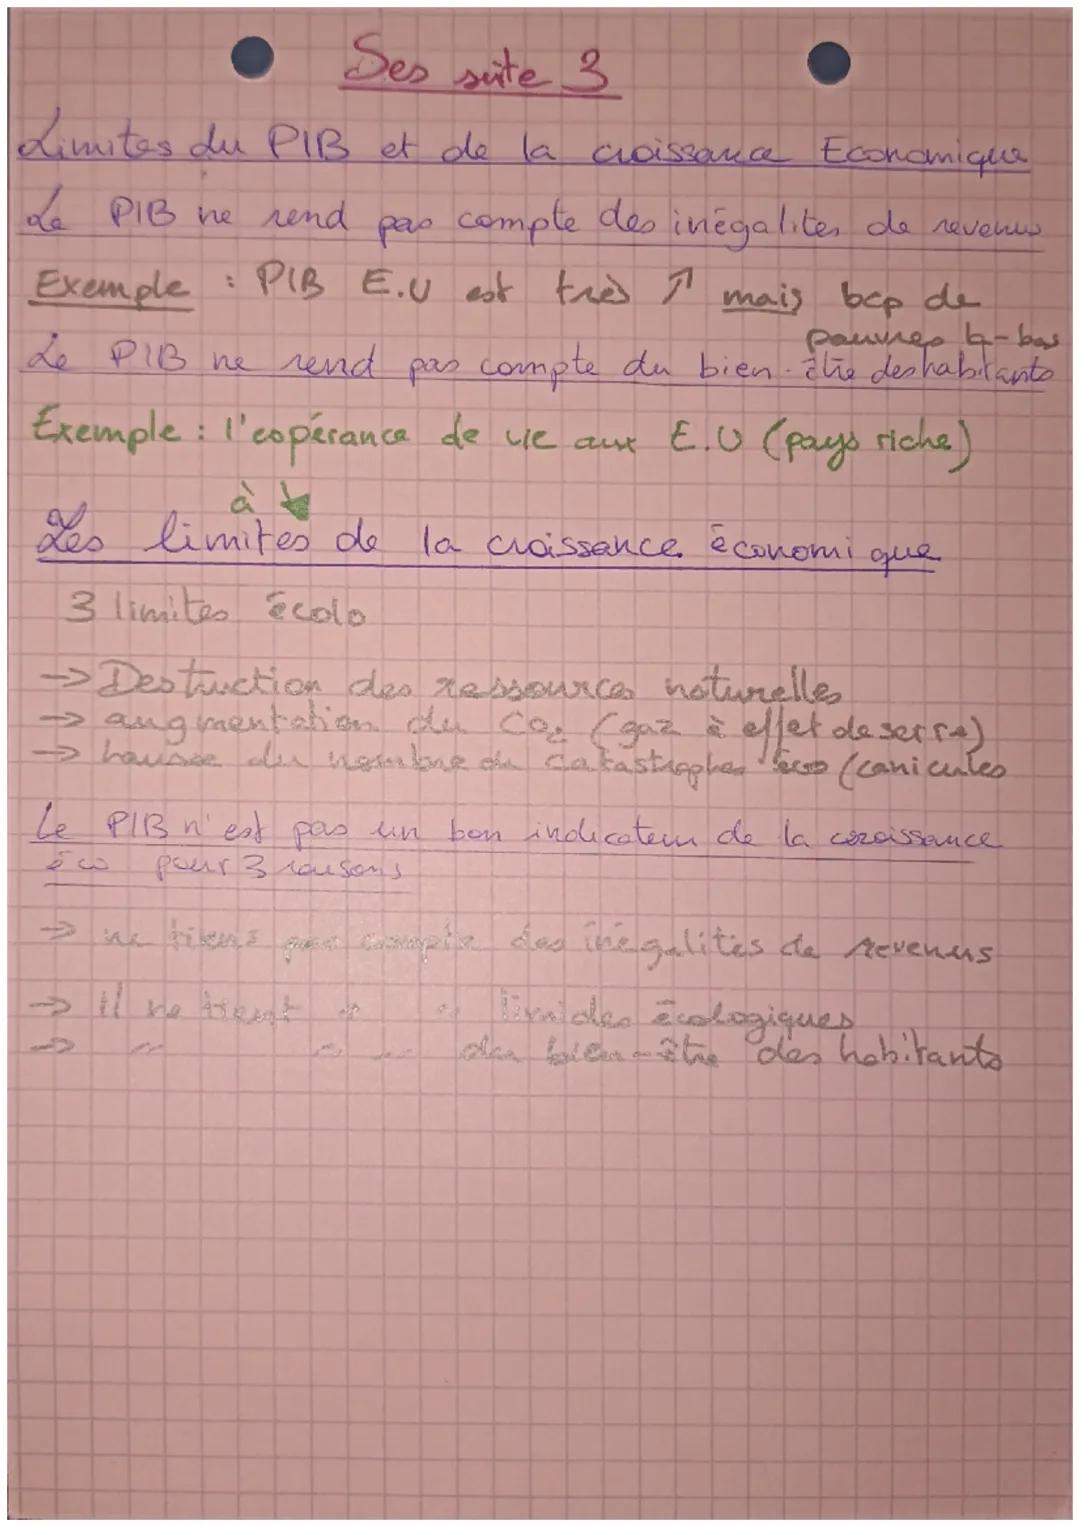 Ses suite 3
Limites du PIB et de la croissance Economique
Le PIB ne rend pas compte des inégalités de revenus
Exemple : PIB E.U est très ↗ mais bcp de
pauvres là-bas
Le PIB ne rend pas compte du bien-être des habitants
Exemple : l'espérance de vie aux E.U (pays riche)
à ↓
Les limites de la croissance économique
3 limites écolo
→ Destruction des ressources naturelles
→ augmentation du CO₂ (gaz à effet de serre)
→ hausse du nombre de catastrophes éco (canicules
Le PIB n'est pas un bon indicateur de la croissance
éco pour 3 raisons
→ ne tiens pas compte des inégalités de revenus
→ Il ne tient " " limides écologiques
→ " " " du bien-être des habitants